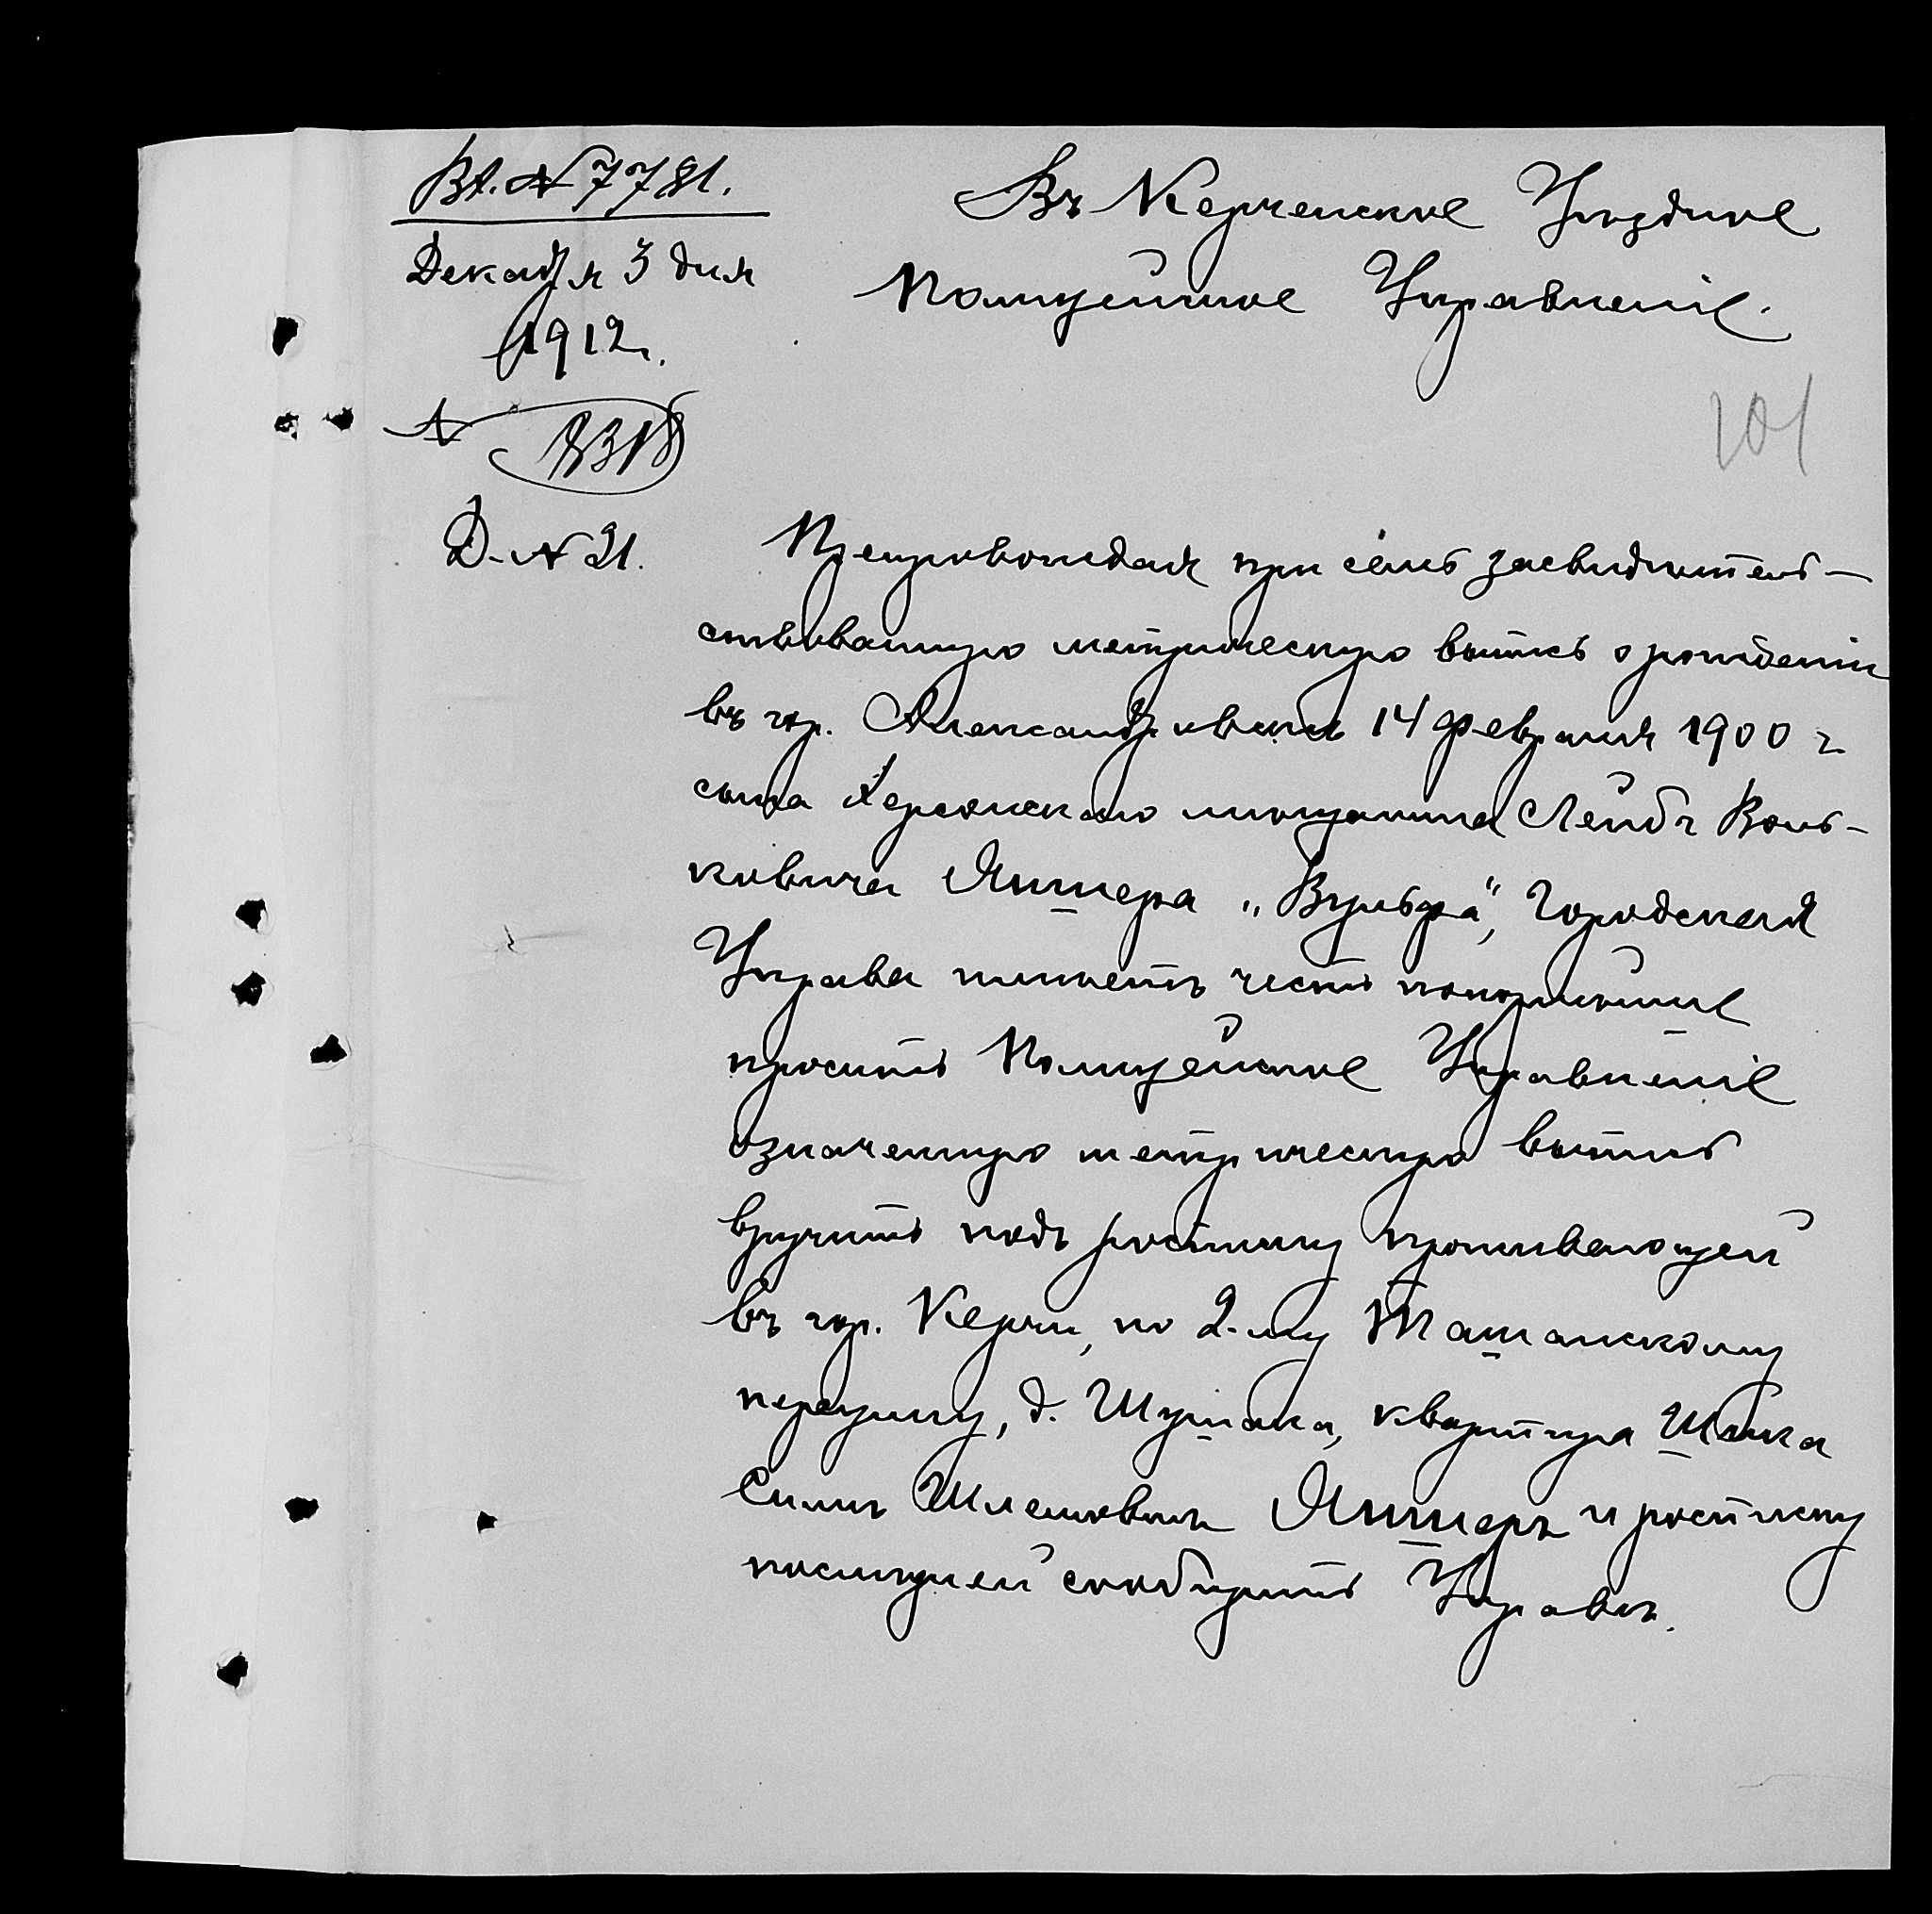 Вх. № 7781.
Декабря 3 дня
1912 г.
№
Д. № 21.
Въ Керченское Уѣздное
Полицейское Управленіе.
101
Препровождая при семъ засвидѣтель-
ствованную метрическую выпись о рожденіи
въ гор. Александровскѣ 14 февраля 1900 г
сына Херсонскаго мѣщанина Лейбы Воль-
ковича Яншера „Вульфа", Городская
Управа имѣетъ честь покорнѣйше
просить Полицейское Управленіе
означенную метрическую выпись
вручить подъ росписку проживающей
въ гор. Керчи, по 2-му
переулку, д. квартира
Симѣ Шлемовнѣ Яншеръ и росписку
послѣдней сообщить Управѣ.